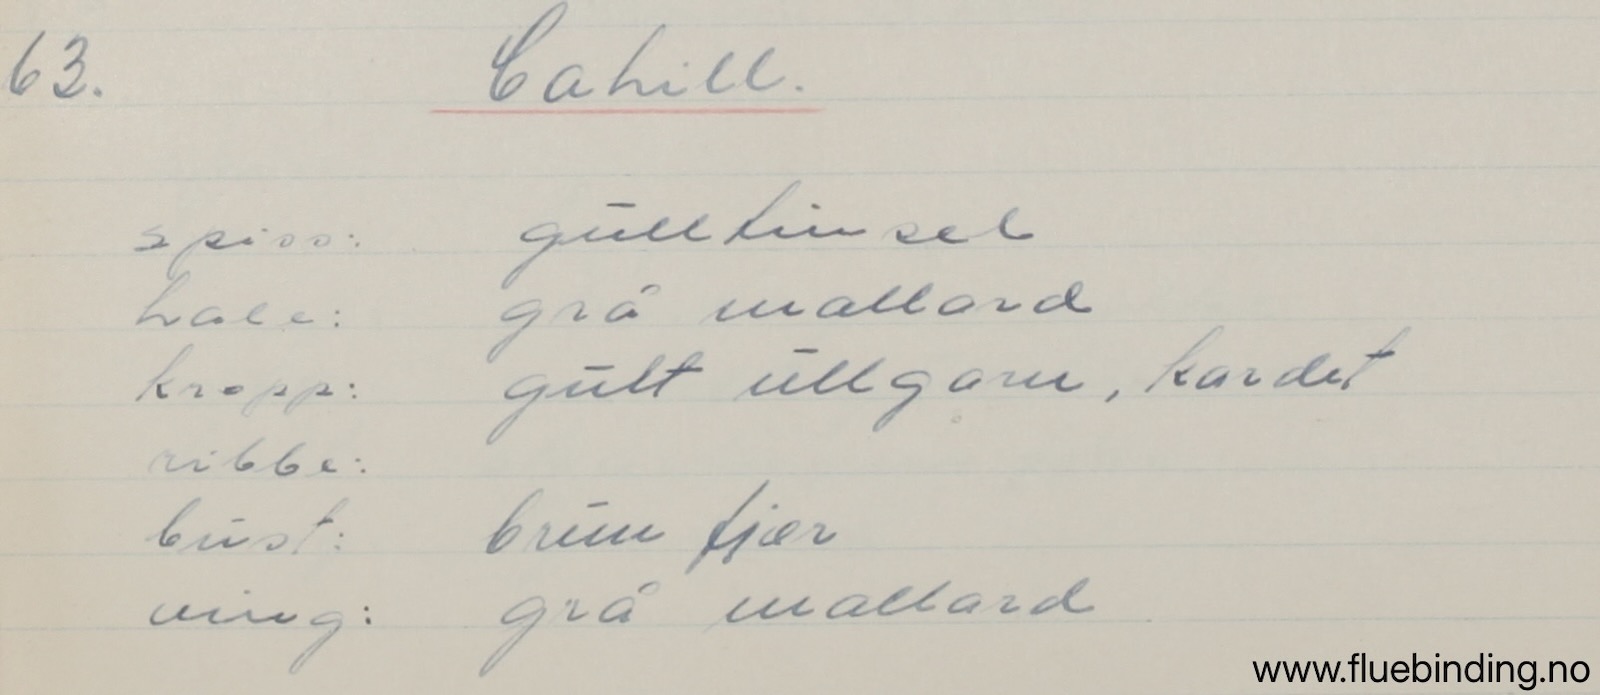 63. Cahill.
spiss: gulltinsel
hale: grå mallard
kropp: gult ullgarn, kardet
ribbe:
bust: brun fjær
ving: grå mallard
www.fluebinding.no